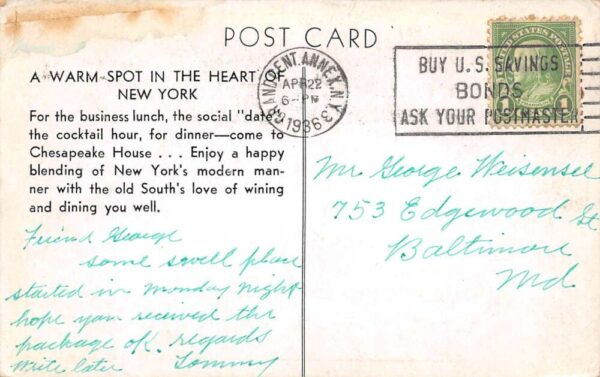 POST CARD
A WARM SPOT IN THE HEART OF
NEW YORK
For the business lunch, the social "date",
the cocktail hour, for dinner—come to
Chesapeake House . . . Enjoy a happy
blending of New York's modern man-
ner with the old South's love of wining
and dining you well.
Friend George
some swell place
started in monday night
hope you received the
package ok. regards
Write later Tommy
GRAND CENT. ANNEX, N.Y.
APR 22
6-PM
1936
3
BUY U.S. SAVINGS
BONDS
ASK YOUR POSTMASTER
UNITED STATES POSTAGE
1
Mr George Weisensel
753 Edgewood St
Baltimore
Md